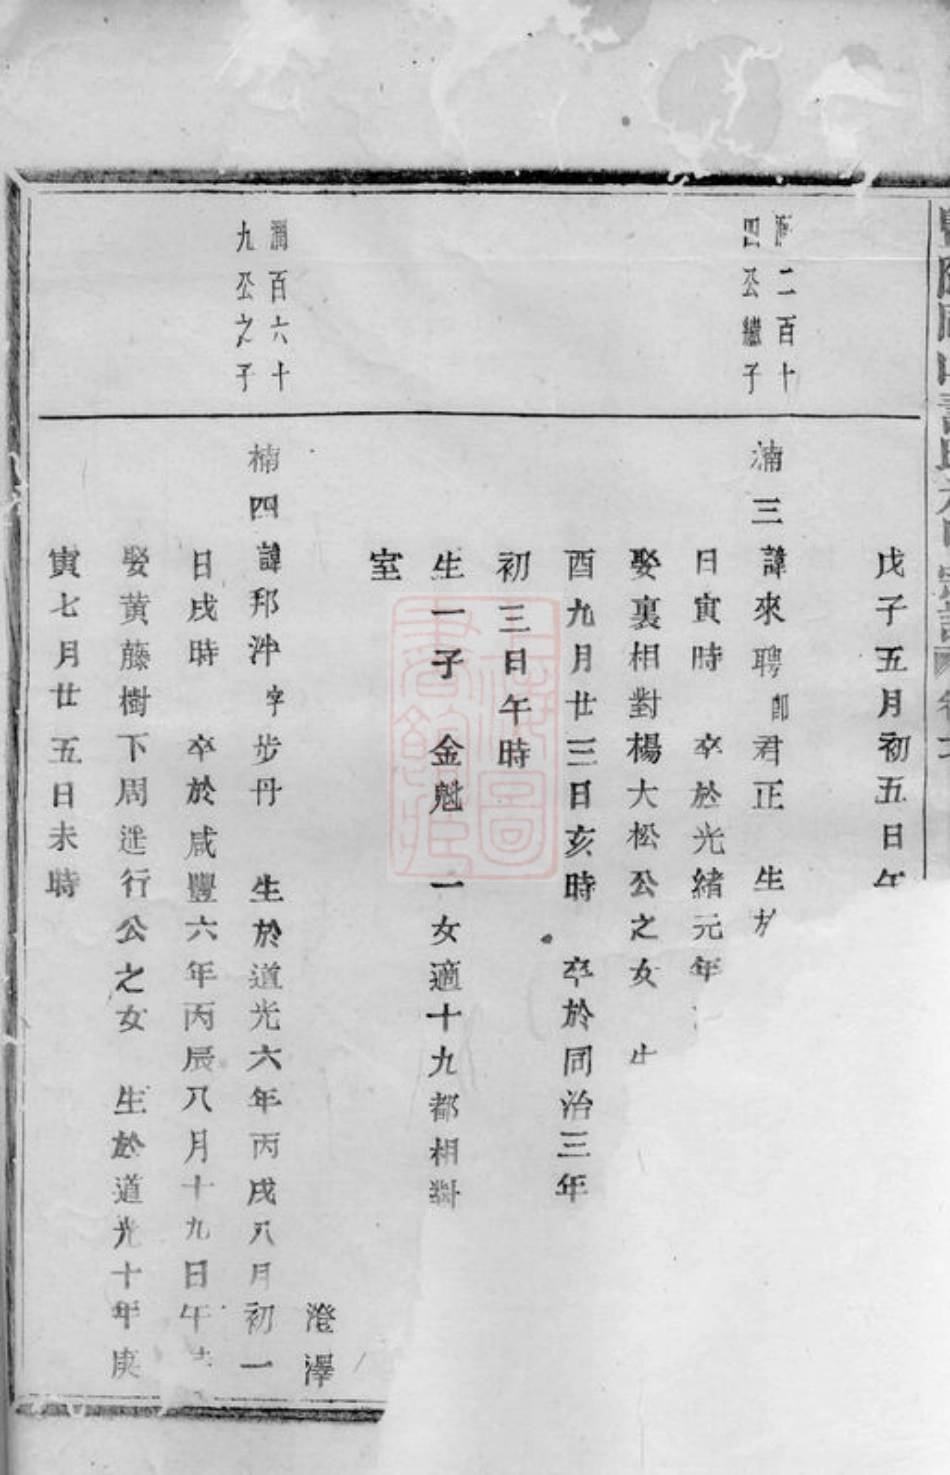 戊子五月初五日午
二百十
四公繼子
楠三諱來聘郎君正 生於
日寅時 卒於光緒元年
娶裏相對楊大松公之女 生
酉九月廿三日亥時 卒於同治三年
初三日午時
生一子金魁 一女適十九都相對
室
澄澤
潤百六十
九公之子
楠四諱邦沖字步丹 生於道光六年丙戌八月初一
日戌時 卒於咸豐六年丙辰八月十九日午時
娶黄藤樹下周進行公之女 生於道光十年庚
寅七月廿五日未時